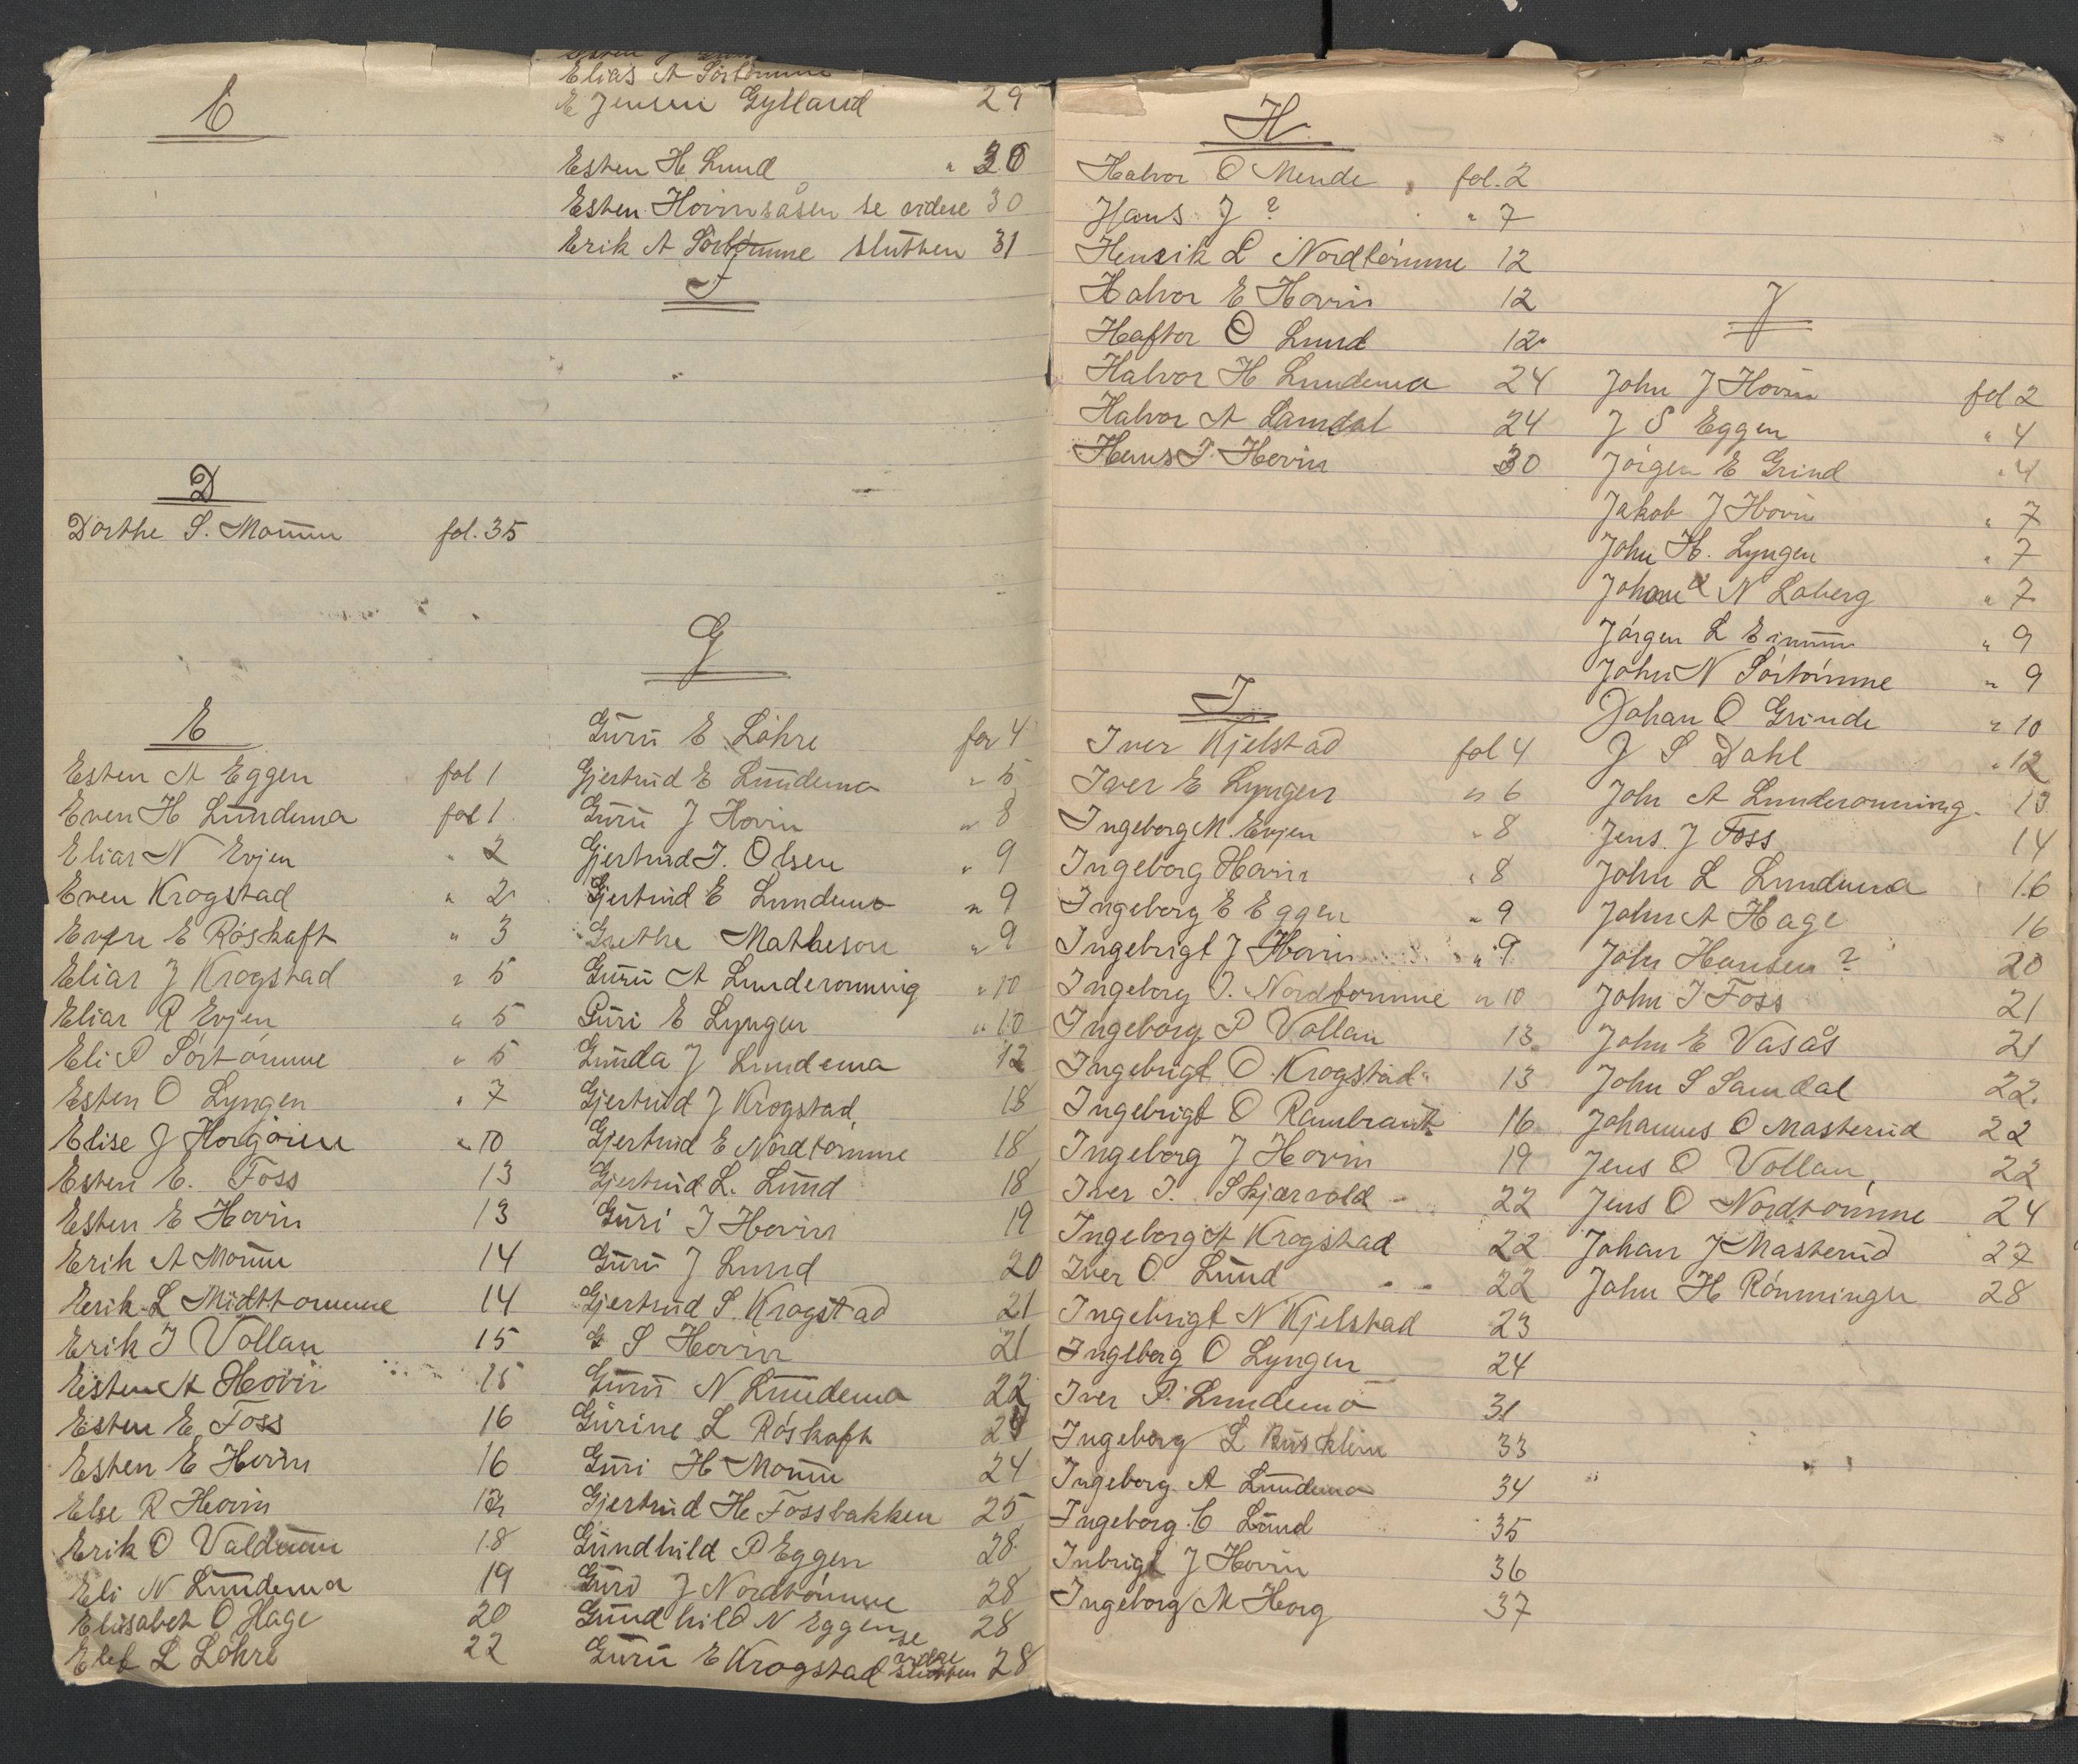 C
D
Dorthe S. Momm fol. 35
E
Esten A Eggen fol 1
Even H Lundemo fol 1
Eliar N Evjen " 2
Even Krogstad " 2
Even E Röskaft " 3
Eliar J Krogstad " 5
Eliar R Evjen " 5
Eli P Sörtömme " 5
Esten O Lyngen " 7
Elise J Horgöien " 10
Esten E. Foss 13
Esten E Hovin 13
Erik A Momm 14
Erik L Midttömme 14
Erik I Vollan 15
Esten A Hovin 15
Esten E Foss 16
Esten E Hovin 16
Else R Hovin
Erik O Valdumm 18
Eli N Lundemo 19
Elisabet O Hage 20
Elef L Löhre 22
Elias A Sörtömme
E Jensen Gylland 29
Esten H Lund " 30
Esten Hovinsåsen se videre 30
Erik A Sörtömme slutten 31
F
G
Guru E Löhre for 4
Gjertrud E Lundemo " 5
Guru J Hovin " 8
Gjertrud J. Olsen " 9
Gjertrud E Lundemo " 9
Grethe Matheson " 9
Guru A Lunderönning " 10
Guri E Lyngen " 10
Gunda J Lundemo 12
Gjertrud J Krogstad 18
Gjertrud E Nordtömme 18
Gjertrud L. Lund 18
Guri I Hovin 19
Guru J Lund 20
Gjertrud S. Krogstad 21
G S Hovin 21
Guru N Lundemo 22
Gurine L Röskaft 24
Guri H Momm 24
Gjertrud He Fossbakken 25
Gundhild P Eggen 28
Guro J Nordtömme 28
Gundhild N Eggen 28
Guru E Krogstad se vidre slutten 28
H
Halvor O Mende fol. 2
Hans J ? " 7
Henrik L Nordtömme 12
Halvor E Hovin 12
Haftor O Lund 12
Halvor H Lundemo 24
Halvor A Samdal 24
Hans P. Hovin 30
I
Iver Kjelstad fol 4
Iver E Lyngen " 6
Ingeborg M. Evjen " 8
Ingeborg Hovin " 8
Ingeborg E Eggen " 9
Ingebrigt J Hovin " 9
Ingeborg J. Nordtömme " 10
Ingeborg P Vollan 13
Ingebrigt O. Krogstad 13
Ingebrigt O Rambrant 16
Ingeborg J Hovin 19
Iver I. Skjærvold 22
Ingeborg A Krogstad 22
Iver O Lund 22
Ingebrigt N Kjelstad 23
Ingeborg O Lyngen 24
Iver P. Lundemo 31
Ingeborg L Busklein 33
Ingeborg A Lundemo 34
Ingeborg C Lund 35
Inbrigt J Hovin 36
Ingeborg M Horg 37
J
John J Hovin fol 2
J S Eggen " 4
Jörgen E Grind " 4
Jakob J Hovin " 7
John H. Lyngen " 7
N Loberg " 7
Jörgen L Eimun " 9
John N Sörtömme " 9
Johan O Grinde " 10
J S Dahl " 12
John A Lunderönning. 13
Jens. J Foss 14
John L Lundemo 16
John A Hage 16
John Hansen ? 20
John I Foss 21
John E Vasås 21
John S Samdal 22.
Johannes O Masterud 22
Jens O Vollan, 22
Jens O Nordtömme 24
Johan J Masterud 27
John H Rönningen 28